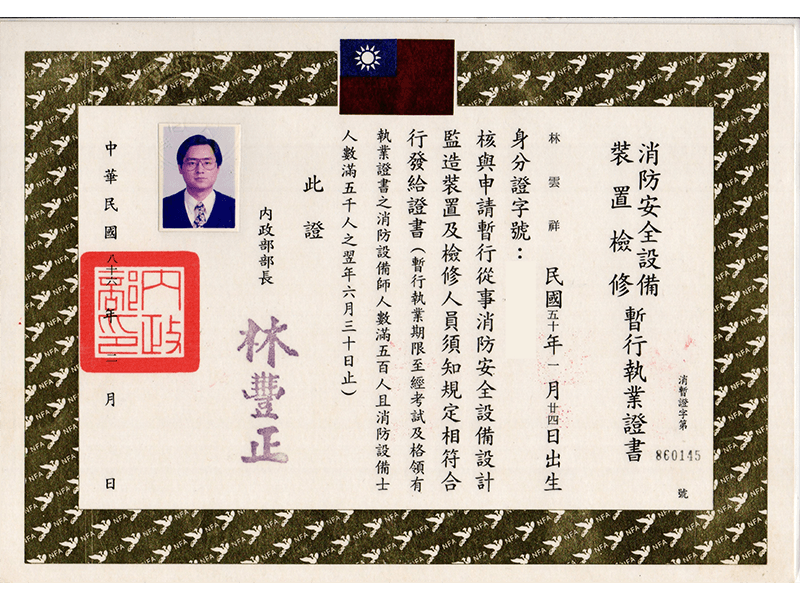 消防安全設備
裝置檢修
暫行執業證書
消暫證字第
860145
號
林雲祥 民國五十年一月廿四日出生
身分證字號：
核與申請暫行從事消防安全設備設計
監造裝置及檢修人員須知規定相符合
行發給證書（暫行執業期限至經考試及格領有
執業證書之消防設備師人數滿五百人且消防設備士
人數滿五千人之翌年六月三十日止）
此證
內政部部長
林豐正
中華民國八十六年二月 日
內政部印
NFA